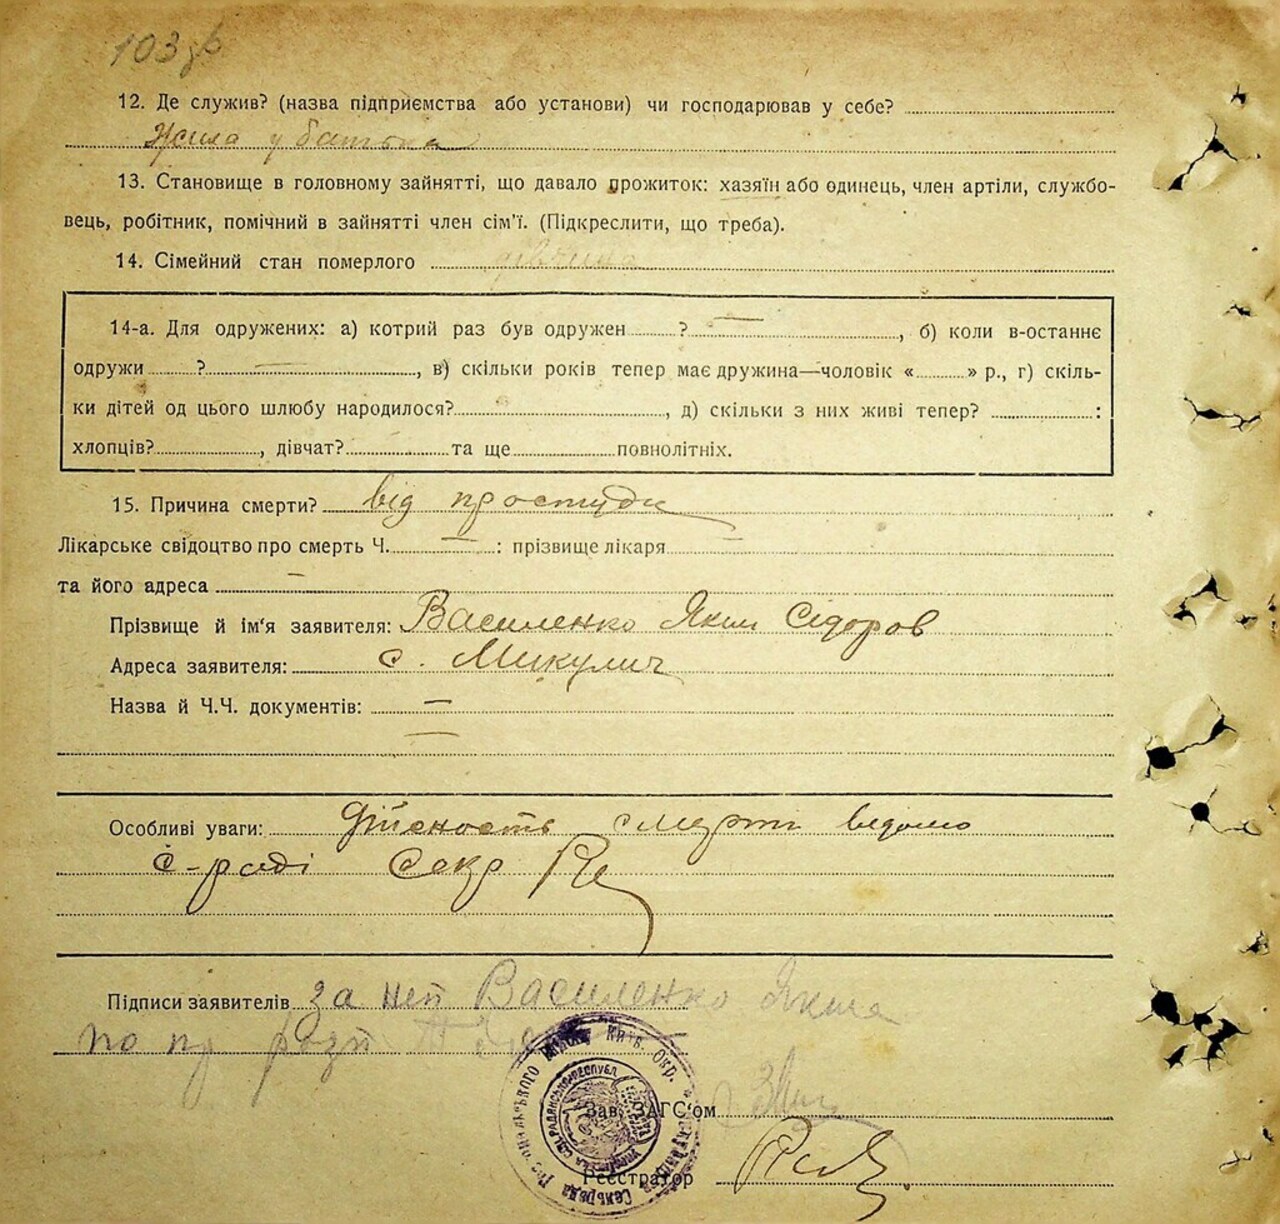 103 зв
12. Де служив? (назва підприємства або установи) чи господарював у себе?
Жила у батька
13. Становище в головному зайнятті, що давало прожиток: хазяїн або одинець, член артіли, службо-
вець, робітник, помічний в зайнятті член сім'ї. (Підкреслити, що треба).
14. Сімейний стан померлого дівчина
14-а. Для одружених: а) котрий раз був одружен ? —, б) коли в-останнє
одружи ? —, в) скільки років тепер має дружина—чоловік « » р., г) скіль-
ки дітей од цього шлюбу народилося? , д) скільки з них живі тепер? :
хлопців? , дівчат? та ще повнолітніх.
15. Причина смерти? від простуди
Лікарське свідоцтво про смерть Ч. — : прізвище лікаря —
та його адреса —
Прізвище й ім'я заявителя: Василенко Яким Сідоров
Адреса заявителя: с. Микулич
Назва й Ч.Ч. документів: —
—
Особливі уваги: Дійсность смерти ведомо
с-раді Секр
Підписи заявителів за неп Василенко Якима
по пр розп
Київ. Окр.
Сельрада
Зав. ЗАГС'ом
Реєстратор